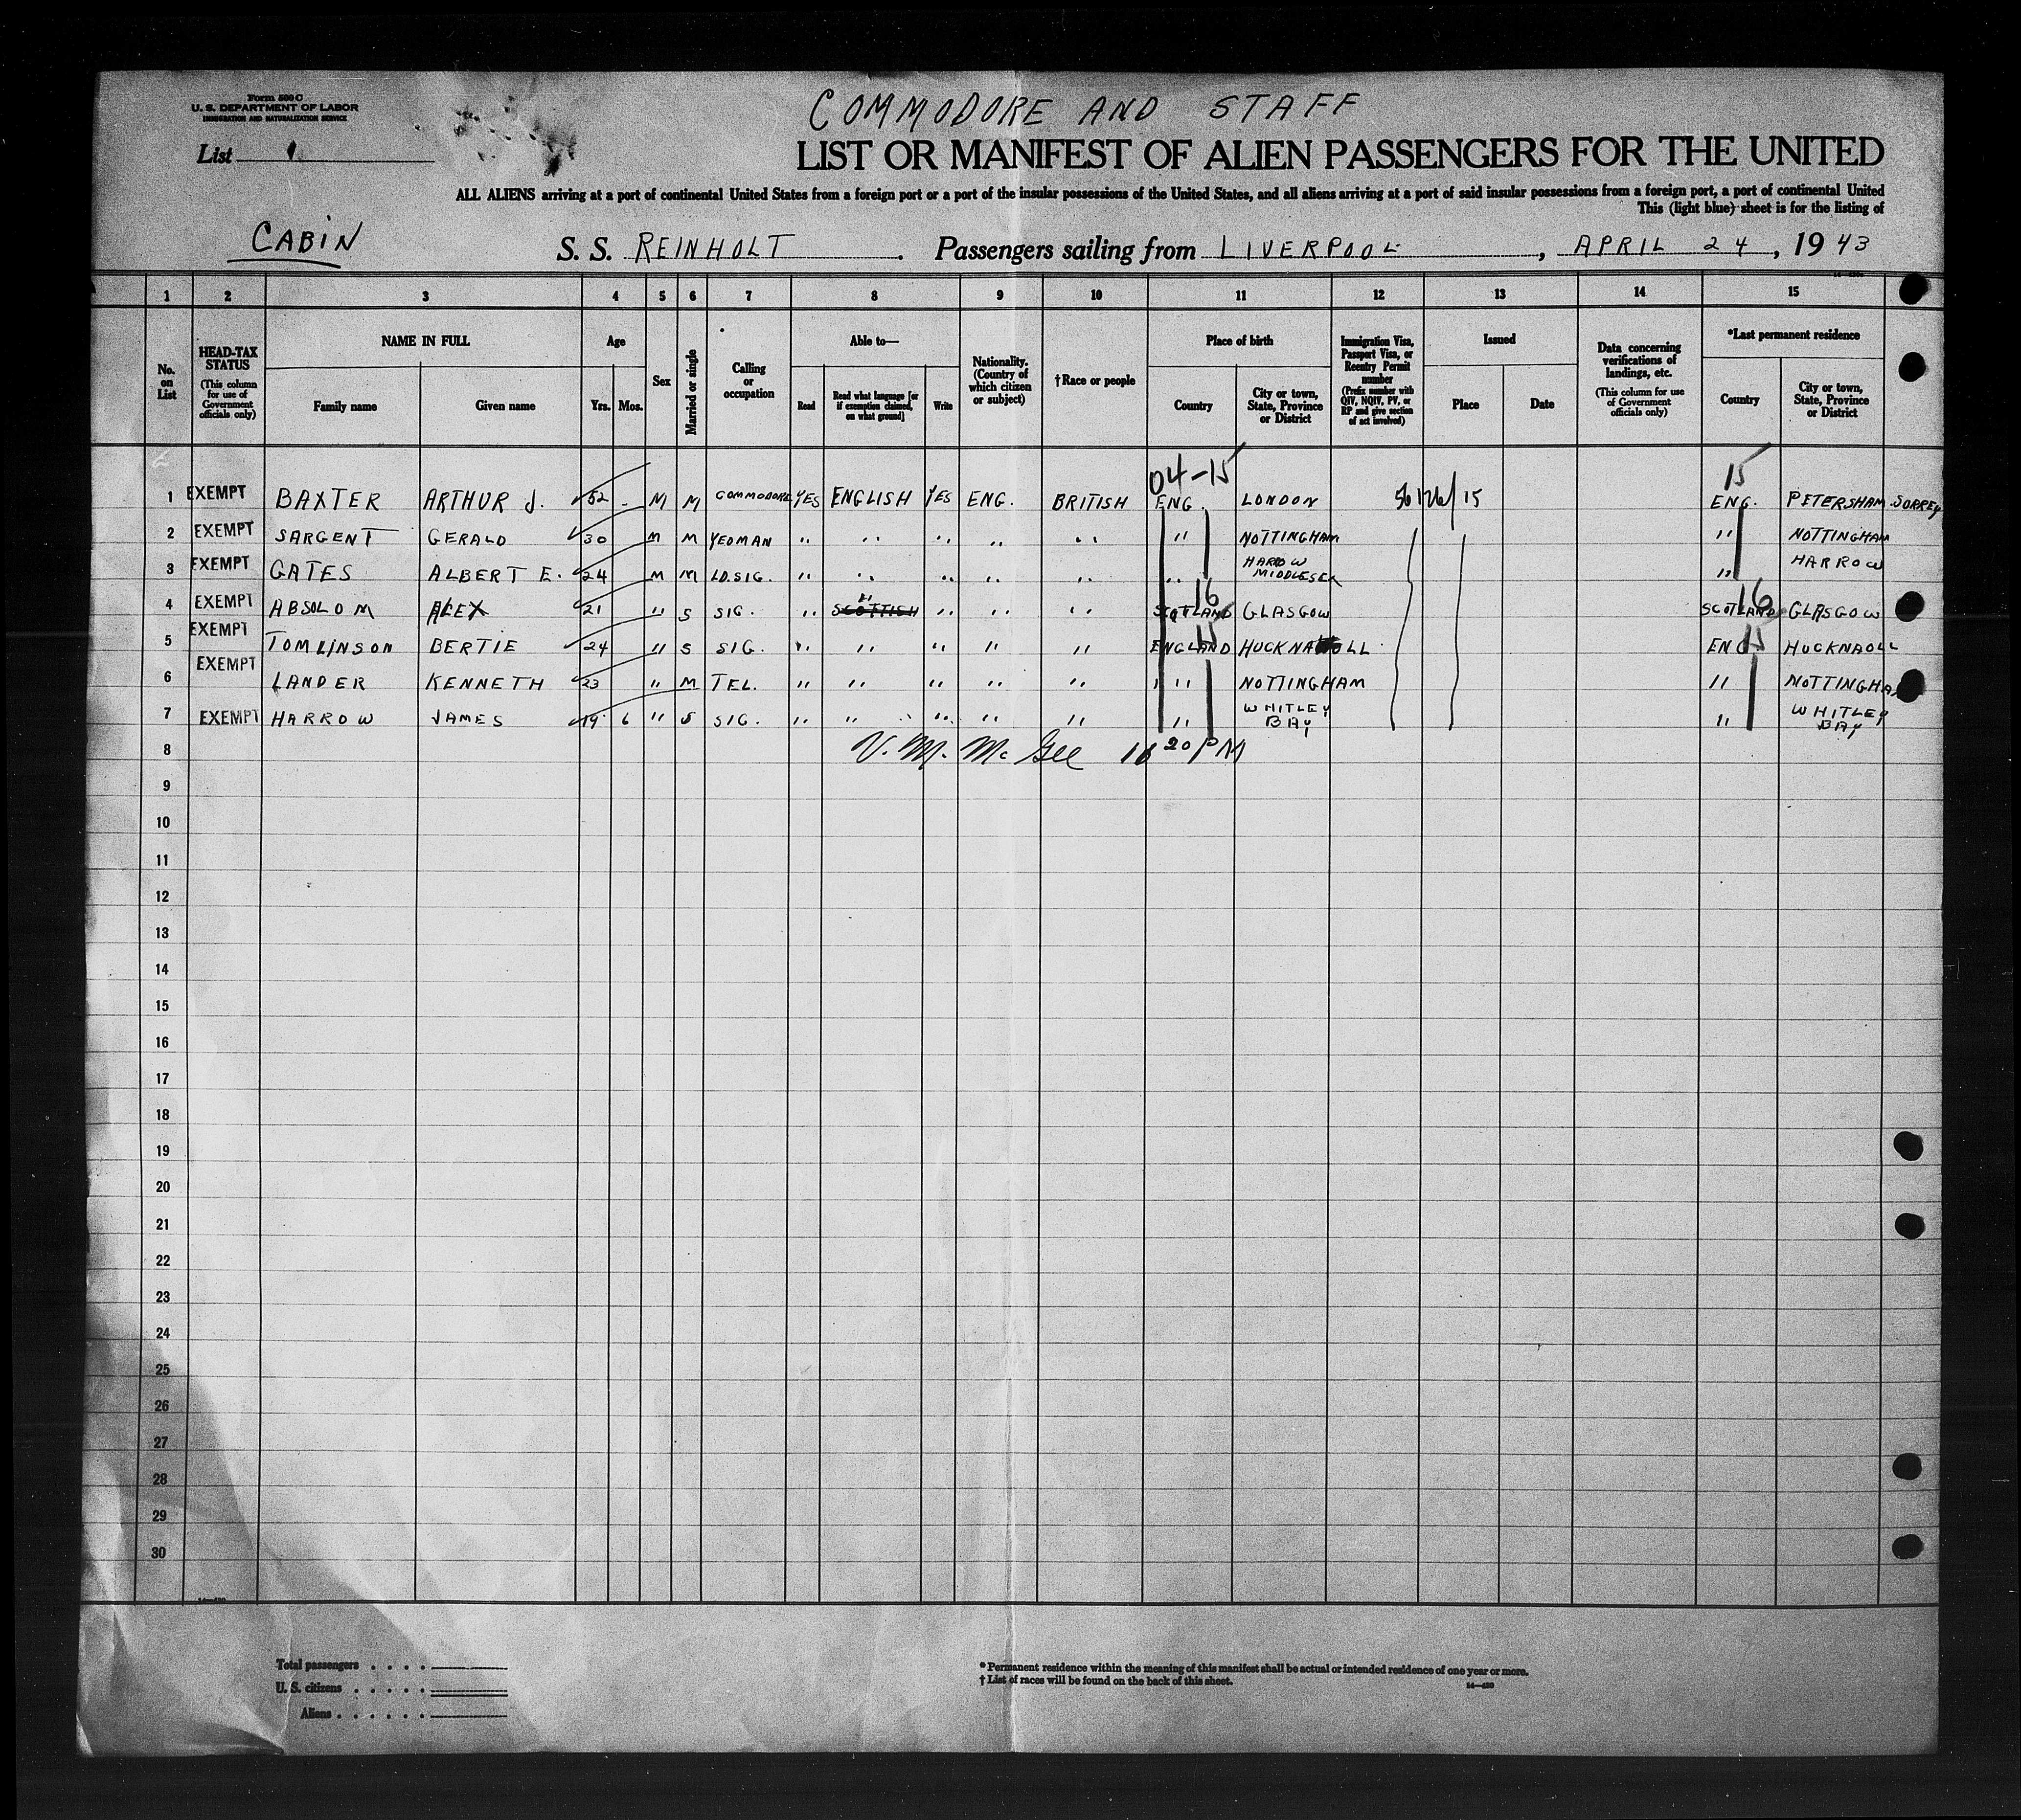 Form 500 C
U. S. DEPARTMENT OF LABOR
IMMIGRATION AND NATURALIZATION SERVICE
COMMODORE AND STAFF
List 1
LIST OR MANIFEST OF ALIEN PASSENGERS FOR THE UNITED
ALL ALIENS arriving at a port of continental United States from a foreign port or a port of the insular possessions of the United States, and all aliens arriving at a port of said insular possessions from a foreign port, a port of continental United
This (light blue) sheet is for the listing of
CABIN S. S. REINHOLT . Passengers sailing from LIVERPOOL , APRIL 24 , 19 43
1 2 3 4 5 6 7 8 9 10 11 12 13 14 15
No. on List
HEAD-TAX STATUS (This column for use of Government officials only)
NAME IN FULL Family name Given name
Age Yrs. Mos.
Sex
Married or single
Calling or occupation
Able to— Read Read what language [or if exemption claimed, on what ground] Write
Nationality. (Country of which citizen or subject)
†Race or people
Place of birth Country City or town, State, Province or District
Immigration Visa, Passport Visa, or Reentry Permit number (Prefix number with QIV, NQIV, PV, or RP and give section of act involved)
Issued Place Date
Data concerning verifications of landings, etc. (This column for use of Government officials only)
*Last permanent residence Country City or town, State, Province or District
04-15 15
1 EXEMPT BAXTER ARTHUR J. 52 - M M COMMODORE YES ENGLISH YES ENG. BRITISH ENG. LONDON ENG. PETERSHAM SORREY
2 EXEMPT SARGENT GERALD 30 M M YEOMAN " " " " " " NOTTINGHAM " NOTTINGHAM
3 EXEMPT GATES ALBERT E. 24 M M LD. SIG. " " " " " " HARROW MIDDLESEX " HARROW
16 16
4 EXEMPT ABSOLOM ALEX 21 " S SIG. " SCOTTISH " " " " SCOTLAND GLASGOW SCOTLAND GLASGOW
15 15
5 EXEMPT TOMLINSON BERTIE 24 " S SIG. " " " " " ENGLAND ENG HUCKNAOLL
6 EXEMPT LANDER KENNETH 23 " M TEL. " " " " " " NOTTINGHAM " NOTTINGHAM
7 EXEMPT HARROW JAMES 19 6 " S SIG. " " " " " " WHITLEY BAY " WHITLEY BAY
8 V. M. McGee 10 20 PM
9
10
11
12
13
14
15
16
17
18
19
20
21
22
23
24
25
26
27
28
29
30
Total passengers . . . .
U. S. citizens . . . . .
Aliens . . . . . .
* Permanent residence within the meaning of this manifest shall be actual or intended residence of one year or more.
† List of races will be found on the back of this sheet.